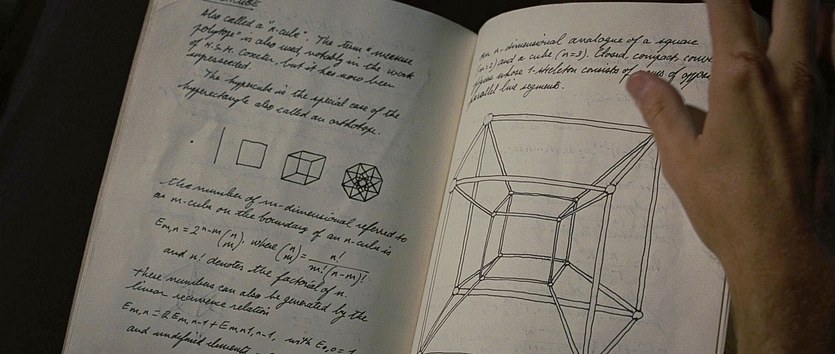 Also called a "n-cube". The term "measure
polytope" is also used, notably in the work
of H.S.M. Coxeter, but it has now been
superseded.
The hypercube is the special case of the
hyperrectangle also called an orthotope.
the number of m-dimensional referred to
an m-cube on the boundary of an n-cube is
Em,n = 2^n-m (n m), where (n m) = n! / m!(n-m)!
and n! denotes the factorial of n.
these numbers can also be generated by the
linear recurrence relation
Em,n = 2Em,n-1 + Em-1,n-1, with E0,0 = 1
and undefined elements
An n-dimensional analogue of a square
(n=2) and a cube (n=3). Closed compact, conve
whose 1-skeleton consists of of oppo
parallel line segments.